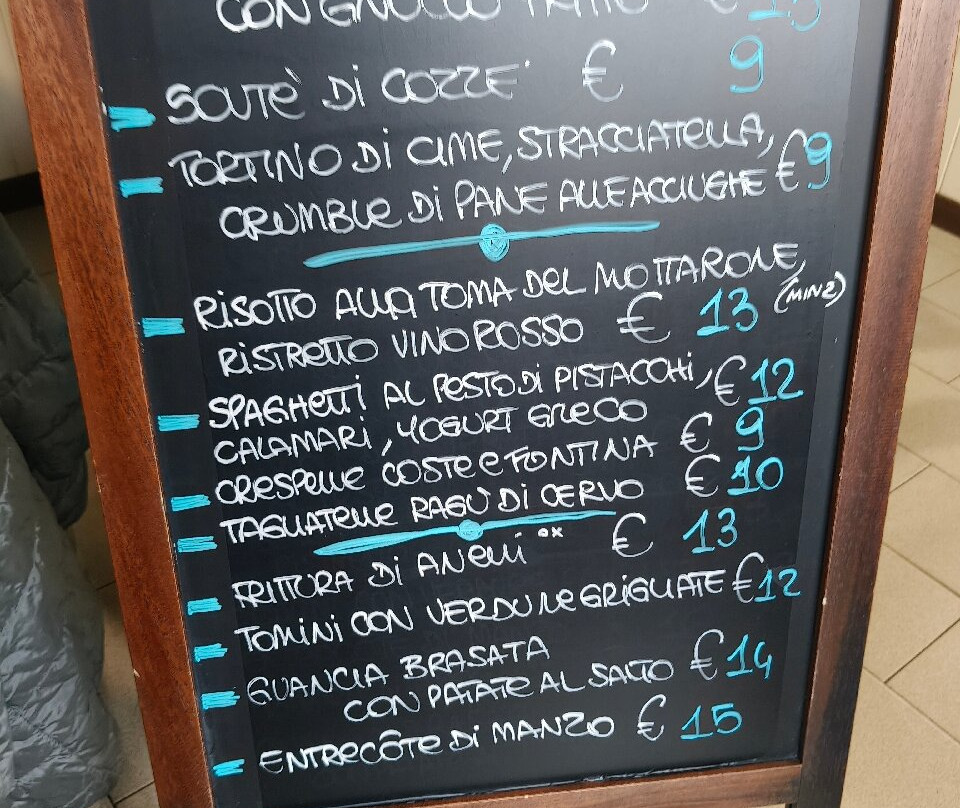 CON GNOCCO FRITTO € 13
SOUTÈ DI COZZE € 9
TORTINO DI CIME, STRACCIATELLA,
CRUMBLE DI PANE ALLE ACCIUGHE € 9
RISOTTO ALLA TOMA DEL MOTTARONE,
RISTRETTO VINO ROSSO € 13 (MIN 2)
SPAGHETTI AL PESTO DI PISTACCHI,
CALAMARI, YOGURT GRECO € 12
CRESPELLE COSTE E FONTINA € 9
TAGLIATELLE RAGÙ DI CERVO € 10
FRITTURA DI ANELLI ** € 13
TOMINI CON VERDURE GRIGLIATE € 12
GUANCIA BRASATA
CON PATATE AL SALTO € 14
ENTRECÔTE DI MANZO € 15